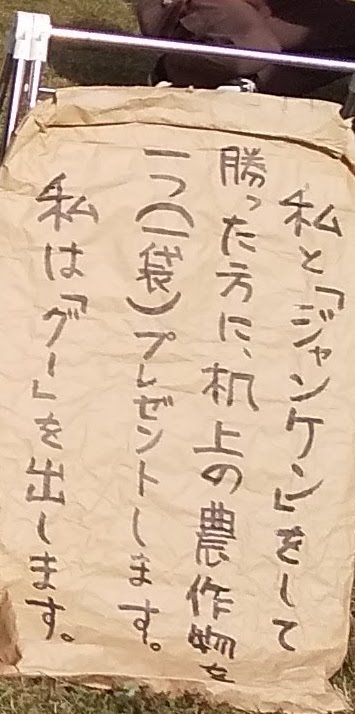 私と「ジャンケン」をして
勝った方に、机上の農作物を
一つ(一袋)プレゼントします。
私は「グー」を出します。